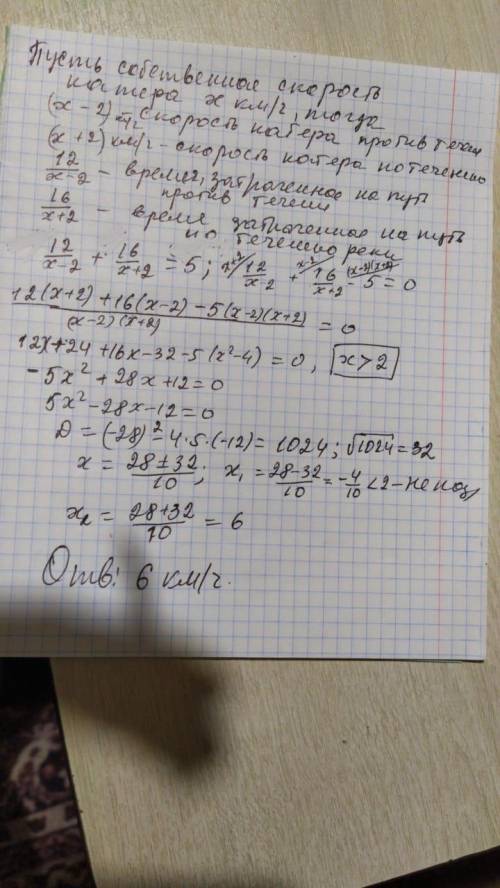 Пусть собственная скорость
катера x км/ч, тогда
(x-2) км/ч скорость катера против течен
(x+2) км/ч - скорость катера по течению
12/(x-2) - время, затраченное на путь
против течени
16/(x+2) - время затраченное на путь
по течению реки
12/(x-2) + 16/(x+2) = 5; x+2/ 12/(x-2) + x-2/ 16/(x+2) - (x-2)(x+2)/ 5 = 0
(12(x+2)+16(x-2)-5(x-2)(x+2))/((x-2)(x+2)) = 0
12x+24+16x-32-5(x²-4)=0, x>2
-5x²+28x+12=0
5x²-28x-12=0
D=(-28)²-4·5·(-12)=1024; √1024=32
x = (28±32)/10; x₁ = (28-32)/10 = -4/10 <2 - не подх
x₂ = (28+32)/10 = 6
Отв: 6 км/ч.